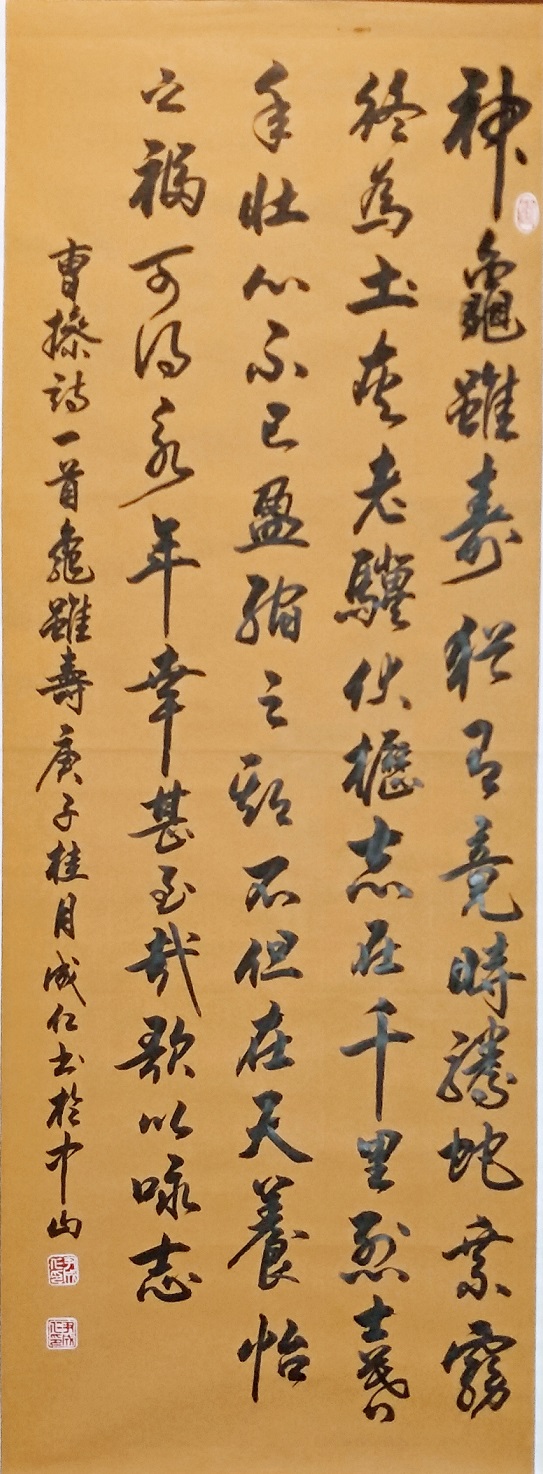 神龜雖壽猶有竟時騰蛇乘霧
終為土灰老驥伏櫪志在千里烈士暮
年壯心不已盈縮之期不但在天養怡
之福可得永年幸甚至哉歌以咏志
曹操詩一首龜雖壽庚子桂月成仁书於中山